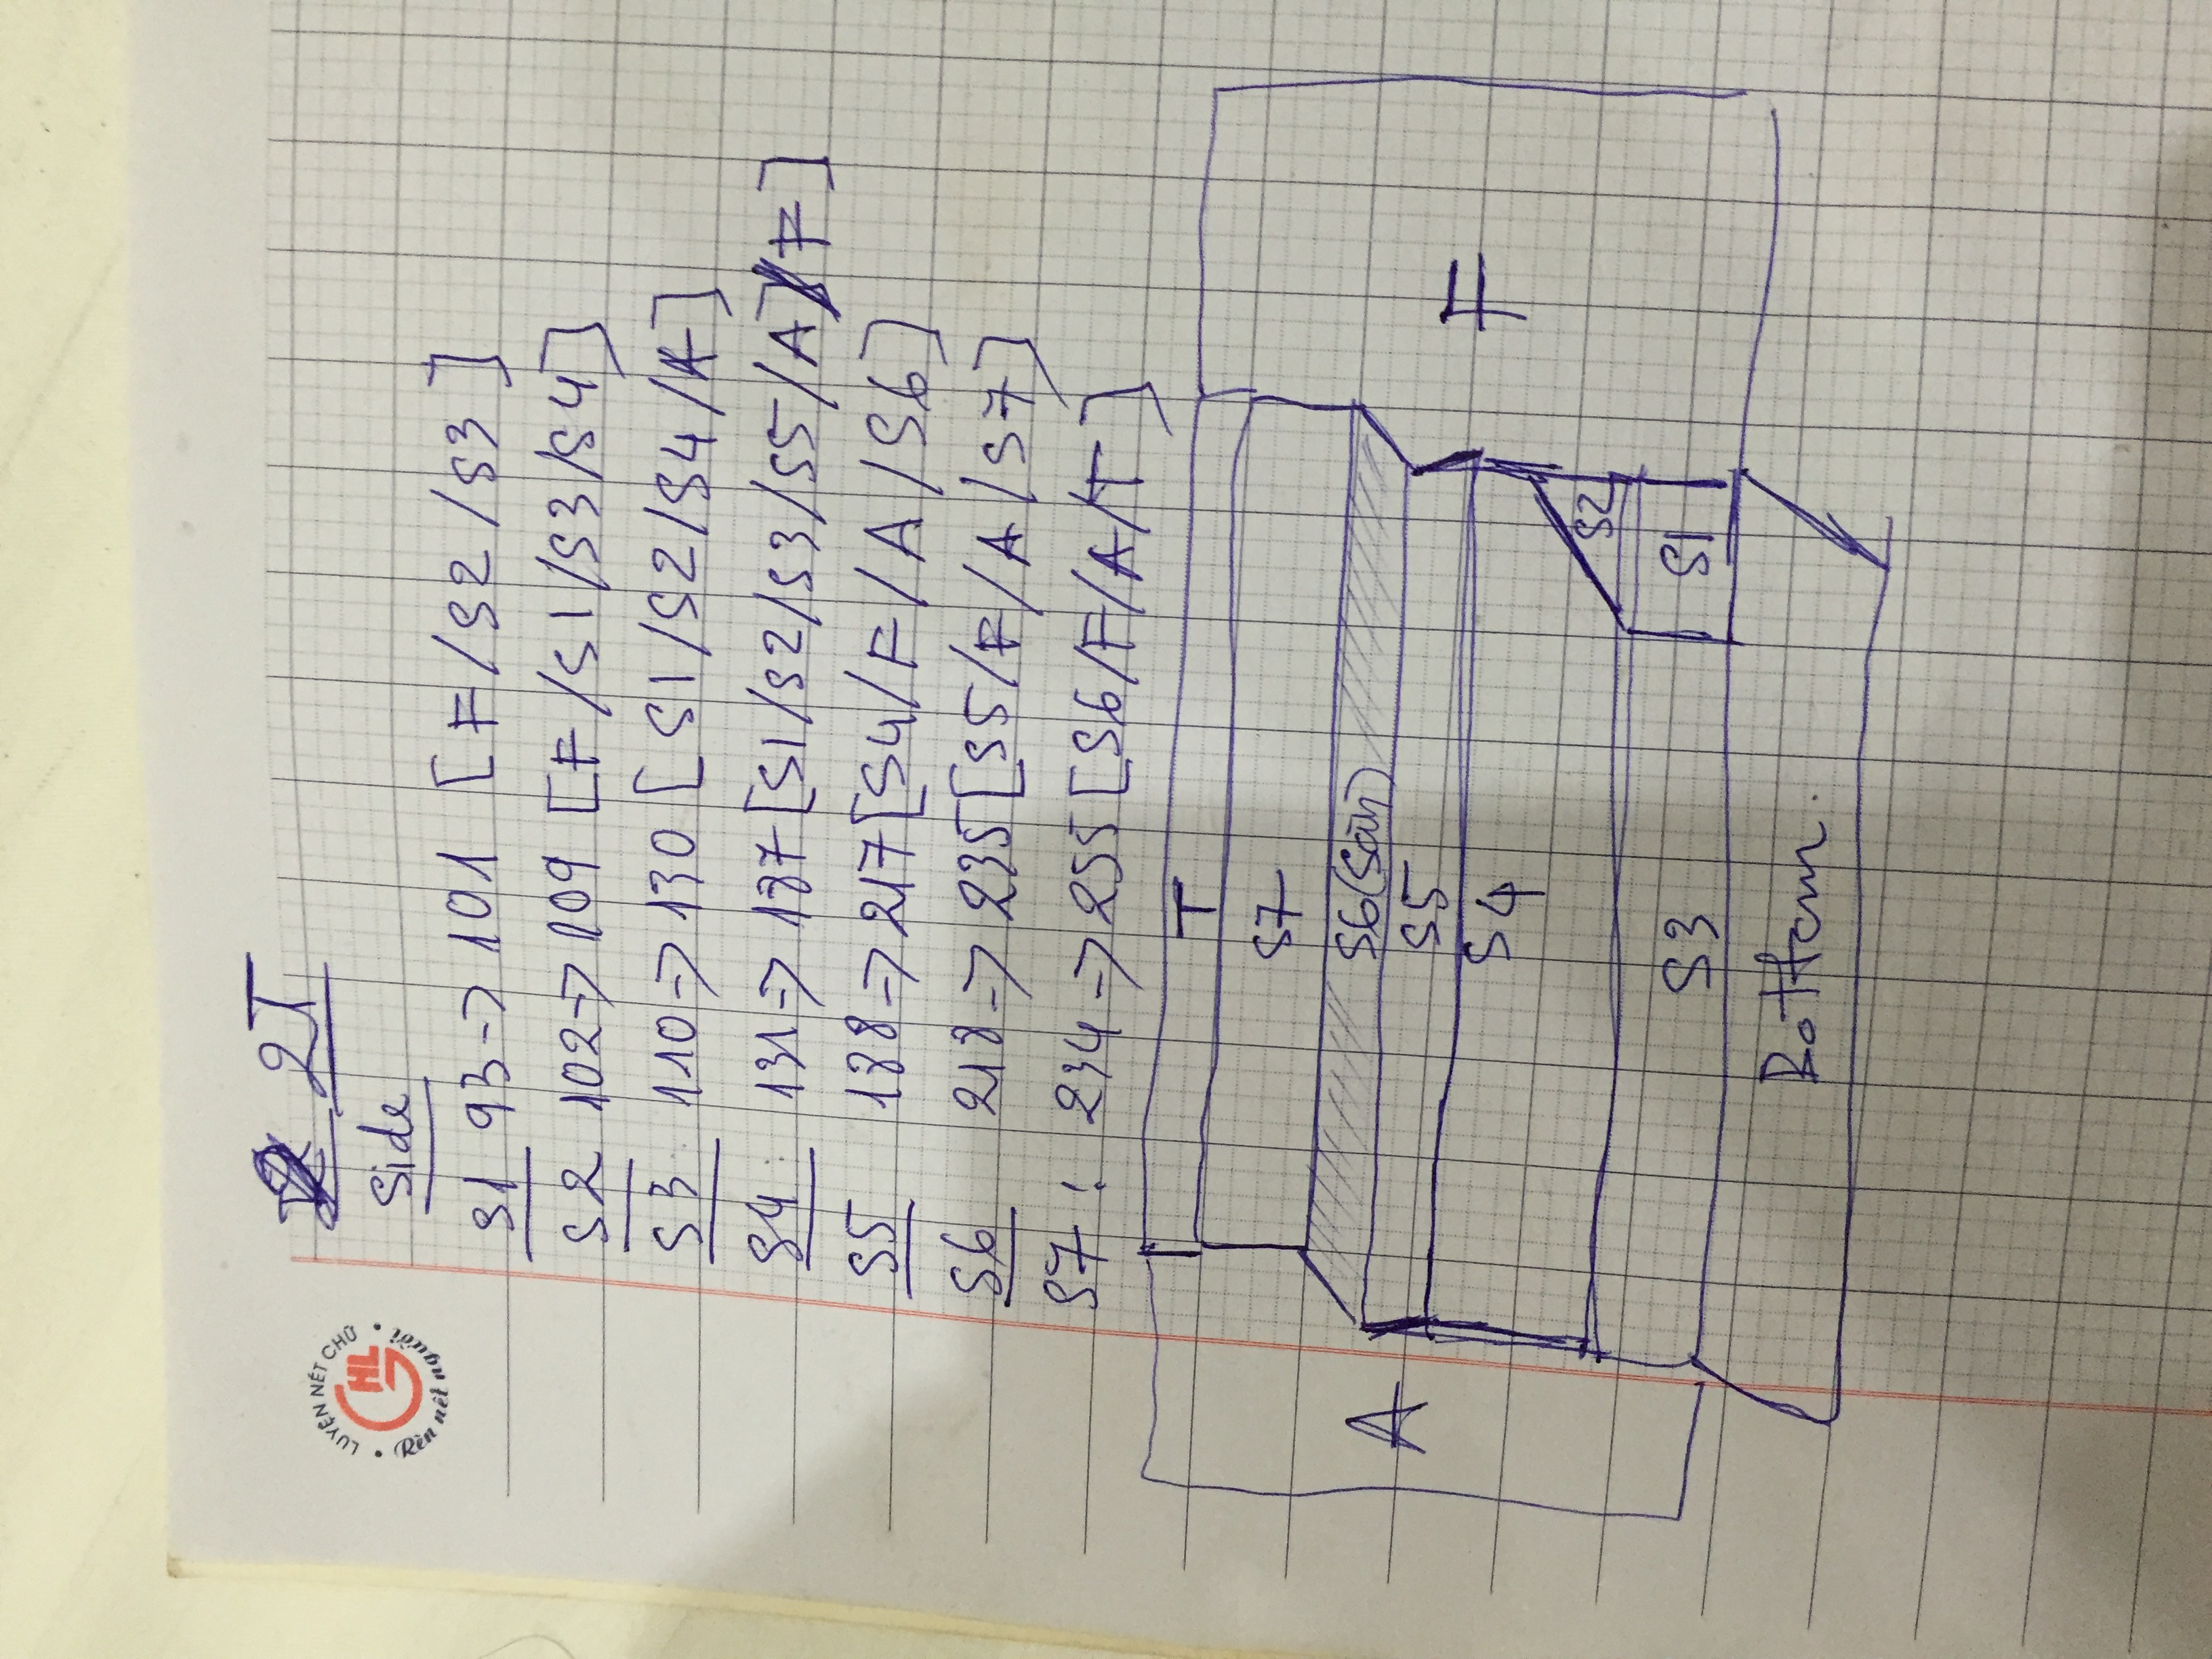 2T
LUYỆN NÉT CHỮ
GHL
Rèn nết người
Side
S1 93 -> 101 [F/S2/S3]
S2 102 -> 109 [F/S1/S3/S4]
S3: 110 -> 130 [S1/S2/S4/A]
S4: 131 -> 187 [S1/S2/S3/S5/A/F]
S5 188 -> 217 [S4/F/A/S6]
S6 218 -> 235 [S5/F/A/S7]
S7: 234 -> 255 [S6/F/A/T]
T
S7
S6 (Sàn)
A
S5
F
S4
S2
S3
S1
Bottom.